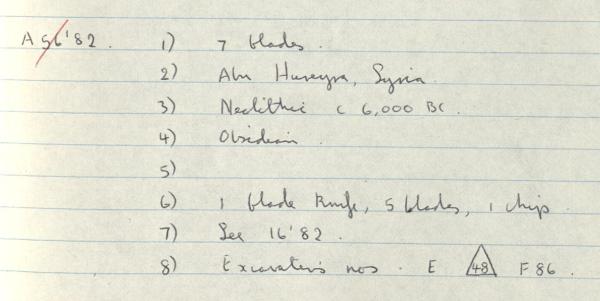 A 56'82. 1) 7 blades.
2) Abu Hureyra, Syria.
3) Neolithic c 6,000 BC.
4) Obsidian.
5)
6) 1 blade knife, 5 blades, 1 chip.
7) See 16'82.
8) Excavater's nos. E 48 F 86.